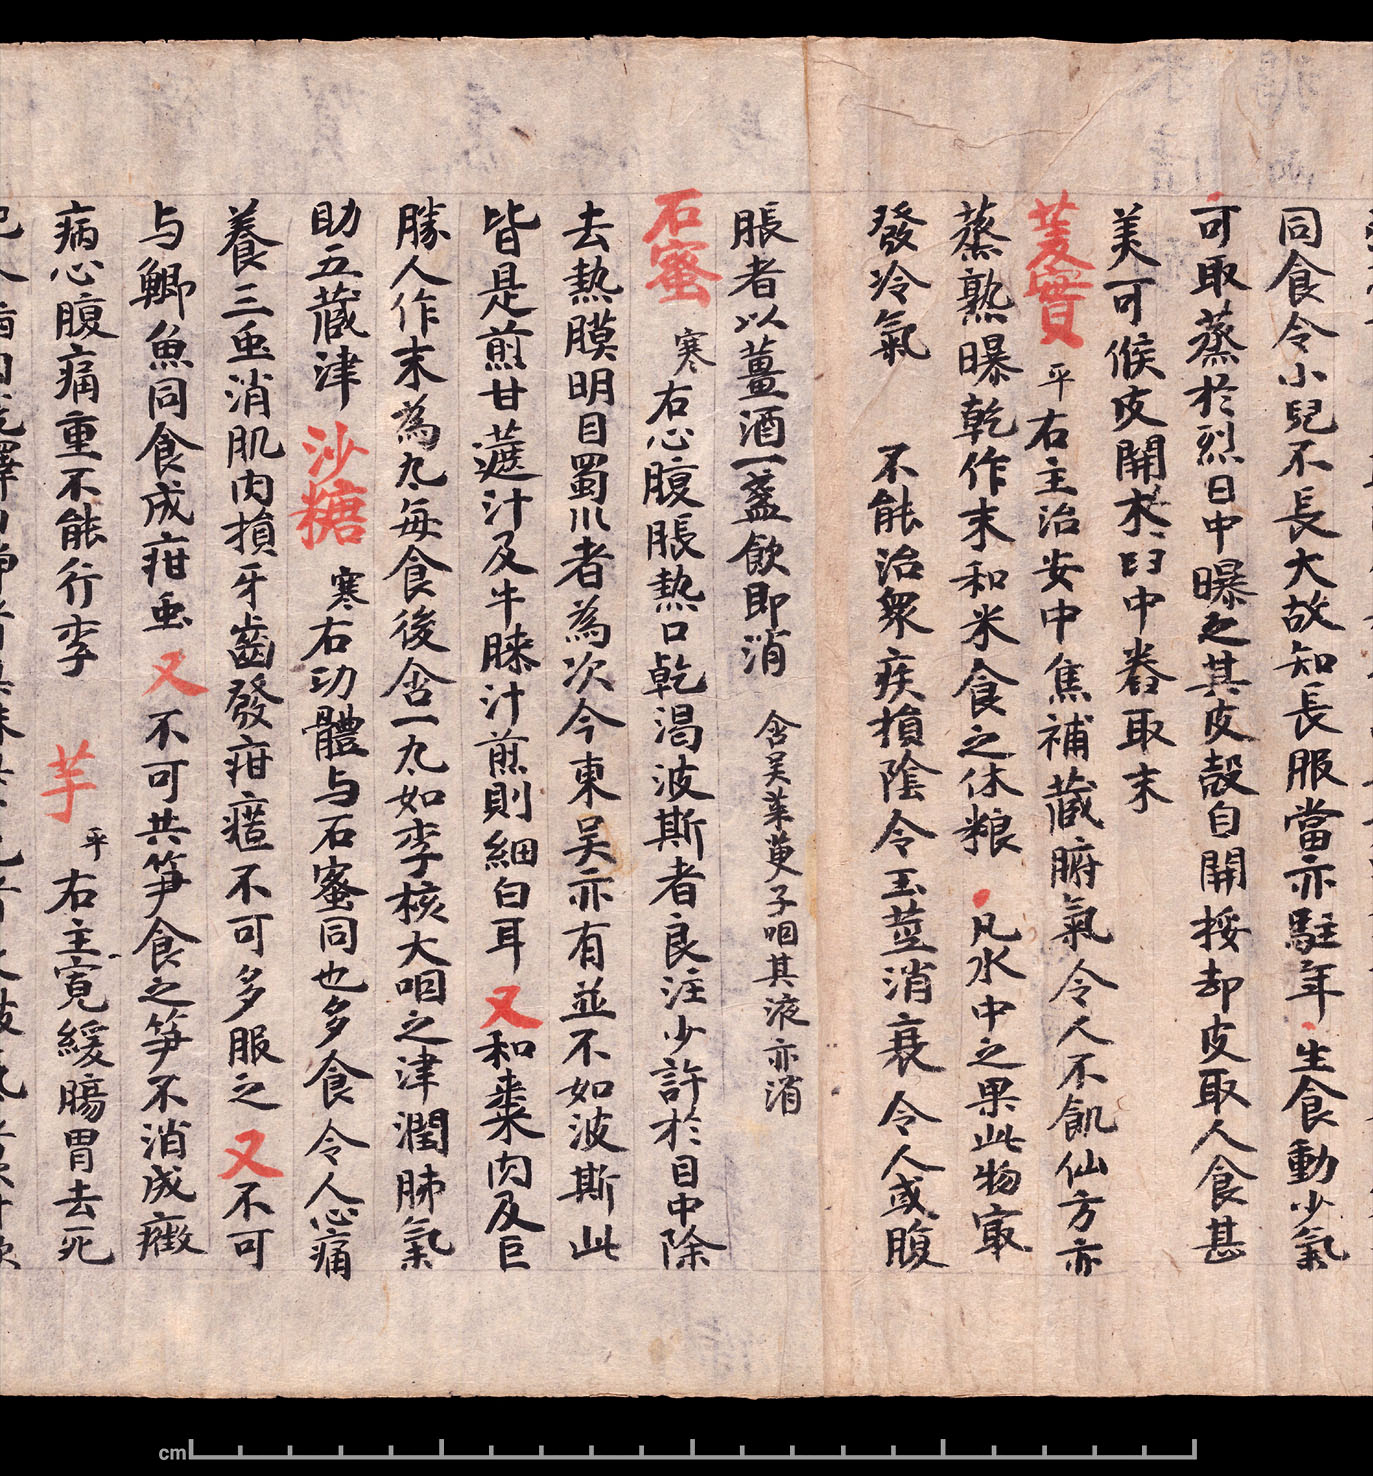 同食令小兒不長大故知長服當亦駐年生食動少氣
可取蒸於烈日中曝之其皮殼自開挼却皮取人食甚
美可候皮開木臼中舂取末
蔆實 平 右主治安中焦補藏腑氣令人不飢仙方亦
蒸熟曝乾作末和米食之休粮 凡水中之果此物寂
發冷氣 不能治衆疾損陰令玉莖消衰令人或腹
脹者以薑酒一盞飲即消 含吴茱萸子咽其液亦消
石蜜 寒 右心腹脹熱口乾渴波斯者良注少許於目中除
去熱膜明目蜀川者為次今東吴亦有並不如波斯此
皆是煎甘蔗汁及牛膝汁煎則細白耳 又 和棗肉及巨
勝人作末為丸每食後含一丸如李核大咽之津潤肺氣
助五藏津 沙糖 寒 右功體与石蜜同也多食令人心痛
養三虫消肌肉損牙齒發疳䘌不可多服之 又 不可
与鯽魚同食成疳虫 又 不可共笋食之笋不消成癥
病心腹痛重不能行李 芋 平 右主寛緩腸胃去死